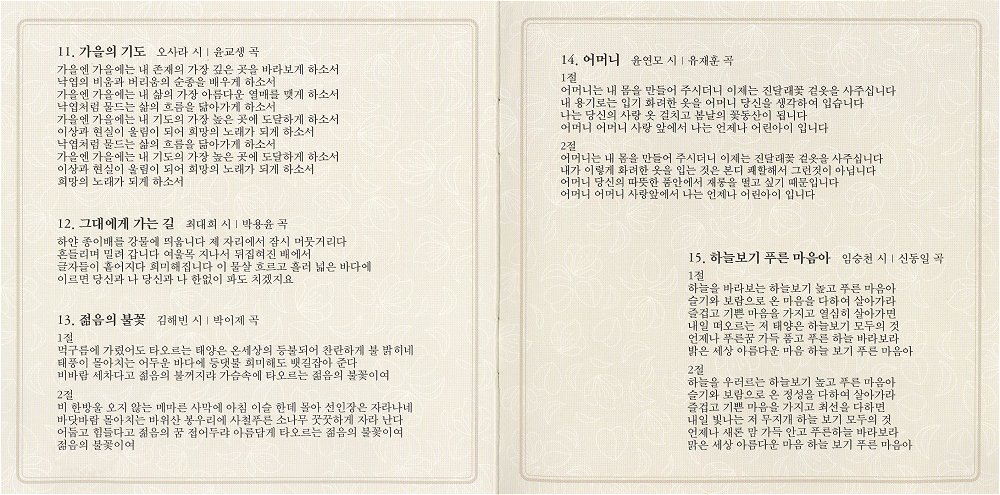 11. 가을의 기도 오사라 시 | 윤교생 곡
가을엔 가을에는 내 존재의 가장 깊은 곳을 바라보게 하소서
낙엽의 비움과 버리움의 순종을 배우게 하소서
가을엔 가을에는 내 삶의 가장 아름다운 열매를 맺게 하소서
낙엽처럼 물드는 삶의 흐름을 닮아가게 하소서
가을엔 가을에는 내 기도의 가장 높은 곳에 도달하게 하소서
이상과 현실이 울림이 되어 희망의 노래가 되게 하소서
낙엽처럼 물드는 삶의 흐름을 닮아가게 하소서
가을엔 가을에는 내 기도의 가장 높은 곳에 도달하게 하소서
이상과 현실이 울림이 되어 희망의 노래가 되게 하소서
희망의 노래가 되게 하소서
12. 그대에게 가는 길 최대희 시 | 박용윤 곡
하얀 종이배를 강물에 띄웁니다 제 자리에서 잠시 머뭇거리다
흔들리며 밀려 갑니다 여울목 지나서 뒤집혀진 배에서
글자들이 흩어지다 희미해집니다 이 물살 흐르고 흘러 넓은 바다에
이르면 당신과 나 당신과 나 한없이 파도 치겠지요
13. 젊음의 불꽃 김해빈 시 | 박이제 곡
1절
먹구름에 가렸어도 타오르는 태양은 온세상의 등불되어 찬란하게 불 밝히네
태풍이 몰아치는 어두운 바다에 등댓불 희미해도 뱃길잡아 준다
비바람 세차다고 젊음의 불꺼지랴 가슴속에 타오르는 젊음의 불꽃이여
2절
비 한방울 오지 않는 메마른 사막에 아침 이슬 한데 몰아 선인장은 자라나네
바닷바람 몰아치는 바위산 봉우리에 사철푸른 소나무 꿋꿋하게 자라 난다
어둡고 힘들다고 젊음의 꿈 접어두랴 아름답게 타오르는 젊음의 불꽃이여
젊음의 불꽃이여
14. 어머니 윤연모 시 | 유재훈 곡
1절
어머니는 내 몸을 만들어 주시더니 이제는 진달래꽃 겉옷을 사주십니다
내 용기로는 입기 화려한 옷을 어머니 당신을 생각하여 입습니다
나는 당신의 사랑 옷 걸치고 봄날의 꽃동산이 됩니다
어머니 어머니 사랑 앞에서 나는 언제나 어린아이 입니다
2절
어머니는 내 몸을 만들어 주시더니 이제는 진달래꽃 겉옷을 사주십니다
내가 이렇게 화려한 옷을 입는 것은 본디 쾌할해서 그런것이 아닙니다
어머니 당신의 따뜻한 품안에서 재롱을 떨고 싶기 때문입니다
어머니 어머니 사랑앞에서 나는 언제나 어린아이 입니다
15. 하늘보기 푸른 마음아 임승천 시 | 신동일 곡
1절
하늘을 바라보는 하늘보기 높고 푸른 마음아
슬기와 보람으로 온 마음을 다하여 살아가라
즐겁고 기쁜 마음을 가지고 열심히 살아가면
내일 떠오르는 저 태양은 하늘보기 모두의 것
언제나 푸른꿈 가득 품고 푸른 하늘 바라보라
밝은 세상 아름다운 마음 하늘 보기 푸른 마음아
2절
하늘을 우러르는 하늘보기 높고 푸른 마음아
슬기와 보람으로 온 정성을 다하여 살아가라
즐겁고 기쁜 마음을 가지고 최선을 다하면
내일 빛나는 저 무지개 하늘 보기 모두의 것
언제나 새론 맘 가득 안고 푸른하늘 바라보라
맑은 세상 아름다운 마음 하늘 보기 푸른 마음아